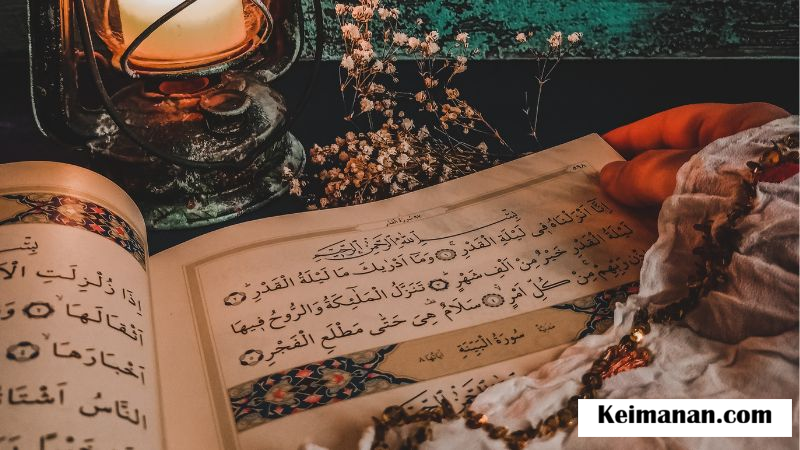 ٥٩٨
بِسْمِ اللّٰهِ الرَّحْمٰنِ الرَّحِيمِ
اِنَّٓا اَنْزَلْنَاهُ فِى لَيْلَةِ الْقَدْرِ ۝ وَمَٓا اَدْرٰيكَ مَا لَيْلَةُ الْقَدْرِ ۝
لَيْلَةُ الْقَدْرِ خَيْرٌ مِنْ اَلْفِ شَهْرٍ ۝ تَنَزَّلُ الْمَلٰٓئِكَةُ وَالرُّوحُ فِيهَا
رَبِّهِمْ مِنْ كُلِّ اَمْرٍ ۝ سَلَامٌ هِىَ حَتّٰى مَطْلَعِ الْفَجْرِ ۝
سُورَةُ الْبَيِّنَةِ
اِذَا زُلْزِلَتِ
اَثْقَالَهَا ۝
اَخْبَارَهَا ۝
النَّاسُ
Keimanan.com